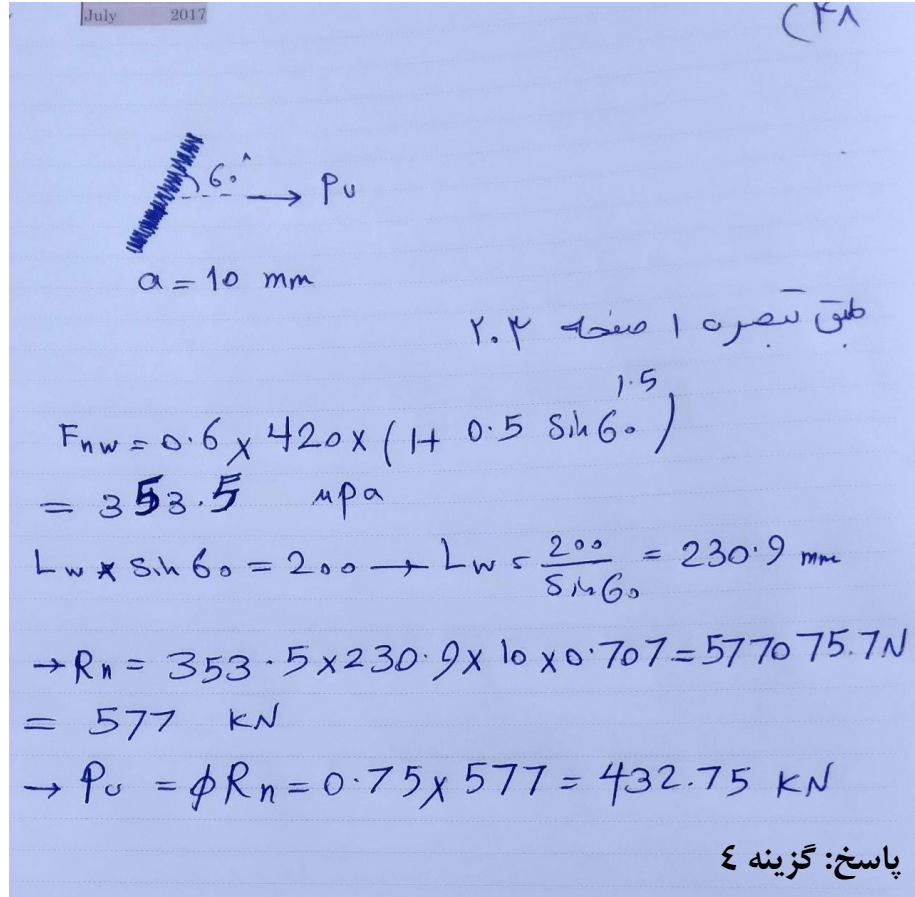 July 2017
۴۸)
60° → Pu
a = 10 mm
طبق تبصره ۱ صفحه ۲۰۳
Fnw = 0.6 × 420 × (1 + 0.5 Sin60^1.5)
= 353.5 mpa
Lw × Sin 60 = 200 → Lw = 200/Sin60 = 230.9 mm
→ Rn = 353.5×230.9×10×0.707=577075.7N
= 577 KN
→ Pu = ϕRn = 0.75×577 = 432.75 KN
پاسخ: گزینه ٤